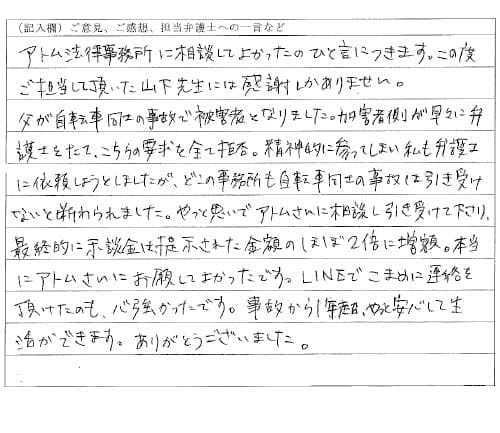 （記入欄）ご意見、ご感想、担当弁護士への一言など
アトム法律事務所に相談してよかったのひと言につきます。この度
ご担当して頂いた山下先生には感謝しかありません。
父が自転車同士の事故で被害者となりました。加害者側が早々に弁
護士をたて、こちらの要求を全て拒否。精神的に参ってしまい私も弁護士
に依頼しようとしましたが、どこの事務所も自転車同士の事故は引き受け
ないと断わられました。やっと思いでアトムさんに相談し引き受けて下さり、
最終的に示談金は提示された金額のほぼ2倍に増額。本当
にアトムさんにお願してよかったです。LINEでこまめに連絡を
頂けたのも、心強かったです。事故から1年超、やっと安心して生
活ができます。ありがとうございました。